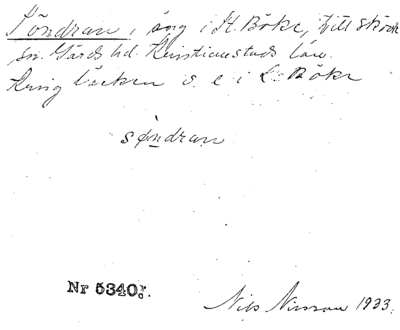 Söndran, äng i St. Böke, Hjillsköds
sn. Gärds hd. Kristianstads län.
Kring bäcken s. e i L. Böke
søndran
Nr 5340
Nils Nilsson 1933.